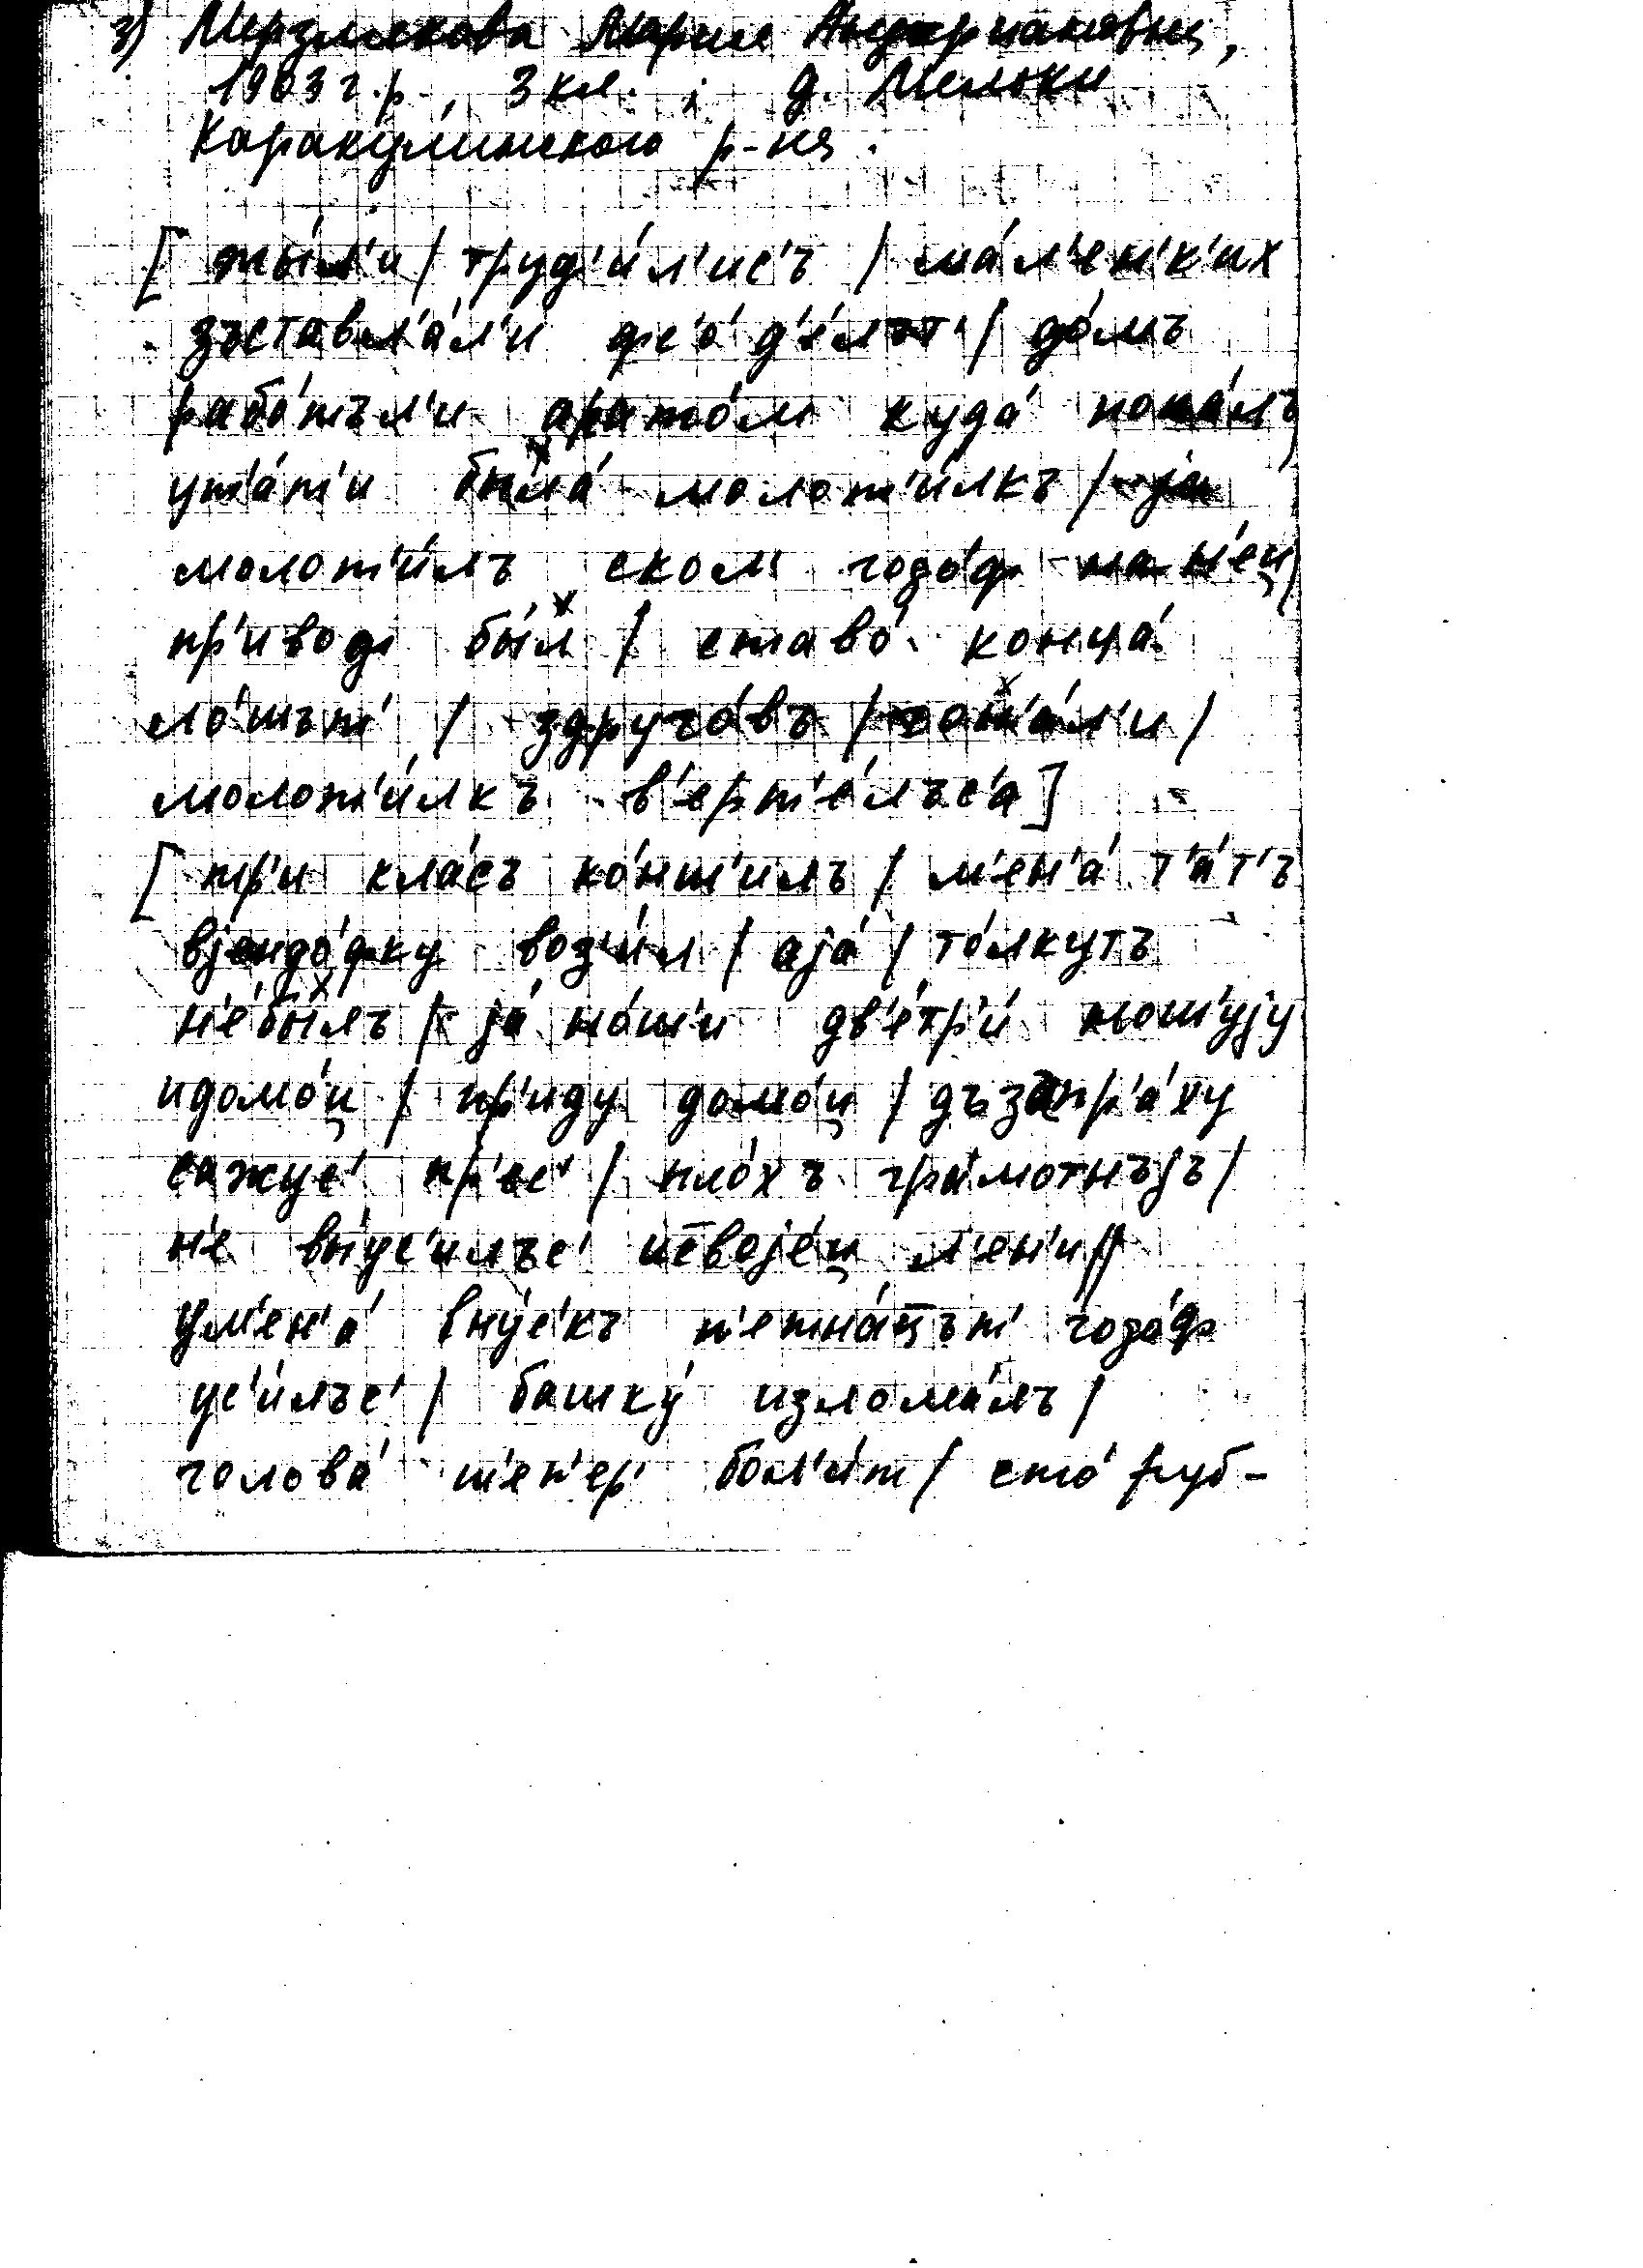 3) Мерзлякова Мария Андриановна,
1903 г.р., 3 кл. ; д. Мельки
Каракулинского р-на.
[ жы́л'и / труд'и́л'ис'ъ / ма́л'ен'к'их
зъставл'а́л'и фс'о́ д'е́лът' / до́мъ
рабо́тъл'и куда́ попа́лъ
была́ молот'и́лкъ / ја
молот'и́лъ ском годо́ф на н'еи̯
пр'ивод бы́л / ставо́ конца́
ло́шът' / здруго́въ / гон'а́л'и /
молот'и́лкъ в'ерт'е́лъс'а ]
[ тр'и кла́съ ко́нч'илъ / м'ен'а́ т'а́т'ъ
возы́л / аја́ / то́лкутъ
н'е́былъ / ја́ но́ч'и дв'е́тр'и́ ноч'ују
идомо́и̯ / пр'иду домо́и̯ / дъзапр'а́ху
сажус' пр'ес' / пло́хъ гра́мотнъјъ /
н'е вы́уч'илъс' исвоје́и̯ л'ен'и //
ум'ен'а́ вну́ч'къ п'етна́цът' годо́ф
уч'и́лъс' / башку́ излома́лъ /
голова́ т'еп'ер' бол'и́т / сто́ руб-